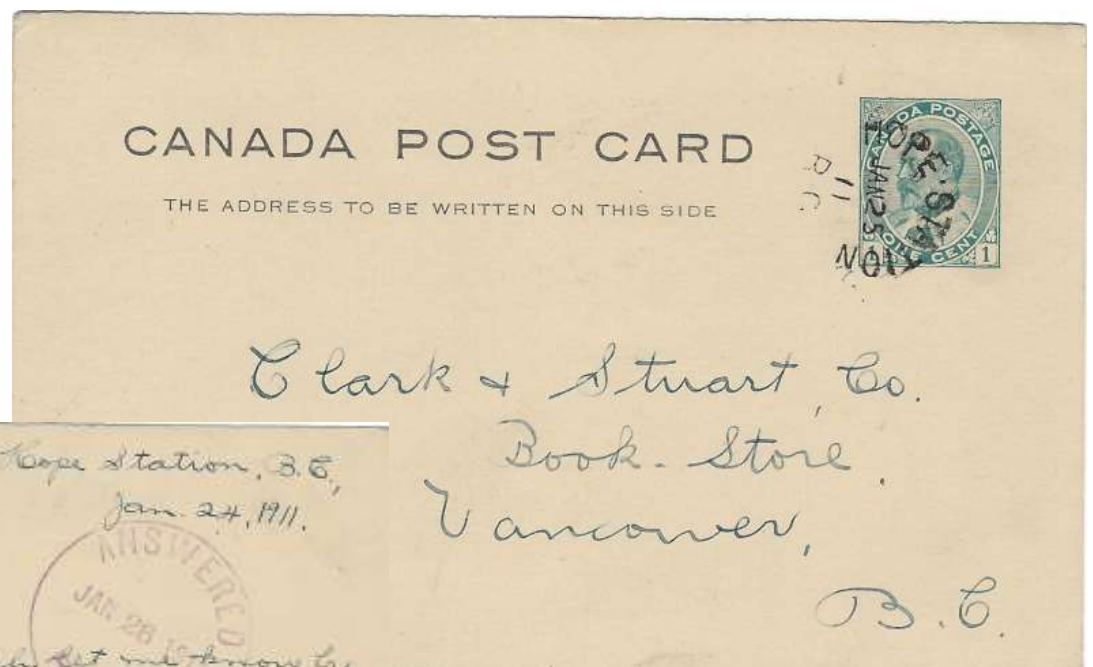 CANADA POST CARD
THE ADDRESS TO BE WRITTEN ON THIS SIDE
CANADA POSTAGE
ONE CENT
1
HOPE·STATION
JAN 25
11
B.C
Clark & Stuart, Co.
Book-Store,
Vancouver,
B.C.
Hope Station, B.C.,
Jan. 24, 1911.
ANSWERED
JAN 26 19
let me know by